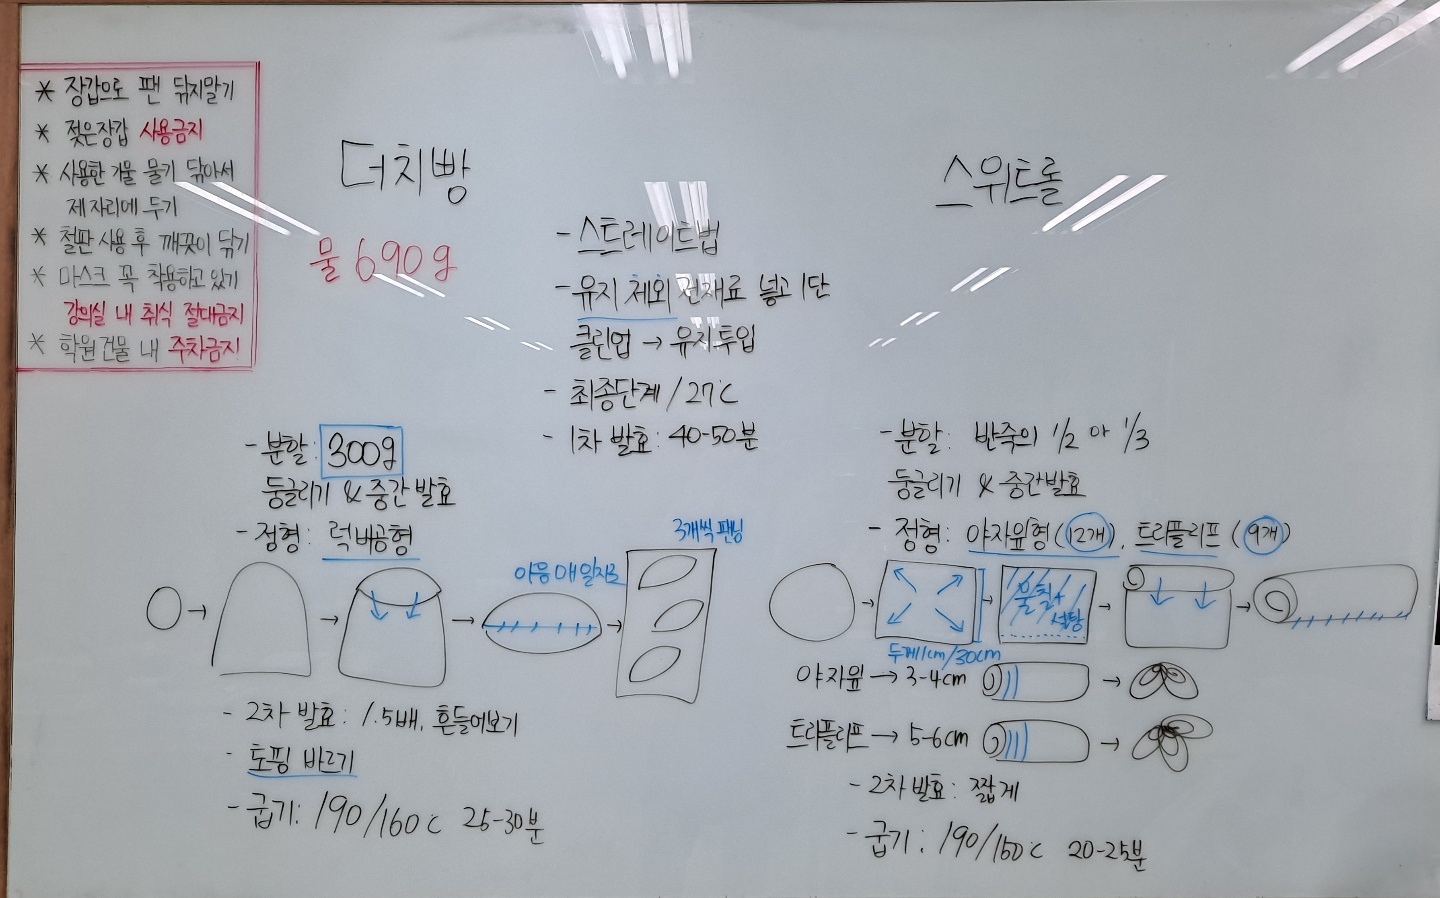 * 장갑으로 팬 닦지말기
* 젖은장갑 사용금지
* 사용한 기물 물기 닦아서
제자리에 두기
* 철판 사용 후 깨끗이 닦기
* 마스크 꼭 착용하고 있기
강의실 내 취식 절대금지
* 학원건물 내 주차금지
더치빵
물 690g
- 스트레이트법
- 유지 제외 전재료 넣고 1단
클린업 → 유지투입
- 최종단계 / 27℃
- 1차 발효: 40-50분
- 분할: 300g
둥글리기 & 중간발효
- 정형: 럭비공형
이음매 일자로
3개씩 패닝
- 2차 발효: 1.5배, 흔들어보기
- 토핑 바르기
- 굽기: 190/160℃ 25-30분
스위트롤
- 분할: 반죽의 1/2 or 1/3
둥글리기 & 중간발효
- 정형: 야자잎형 (12개), 트리플리프 (9개)
물칠+
설탕
두께1cm/30cm
야자잎 → 3-4cm
트리플리프 → 5-6cm
- 2차발효: 짧게
- 굽기: 190/150℃ 20-25분